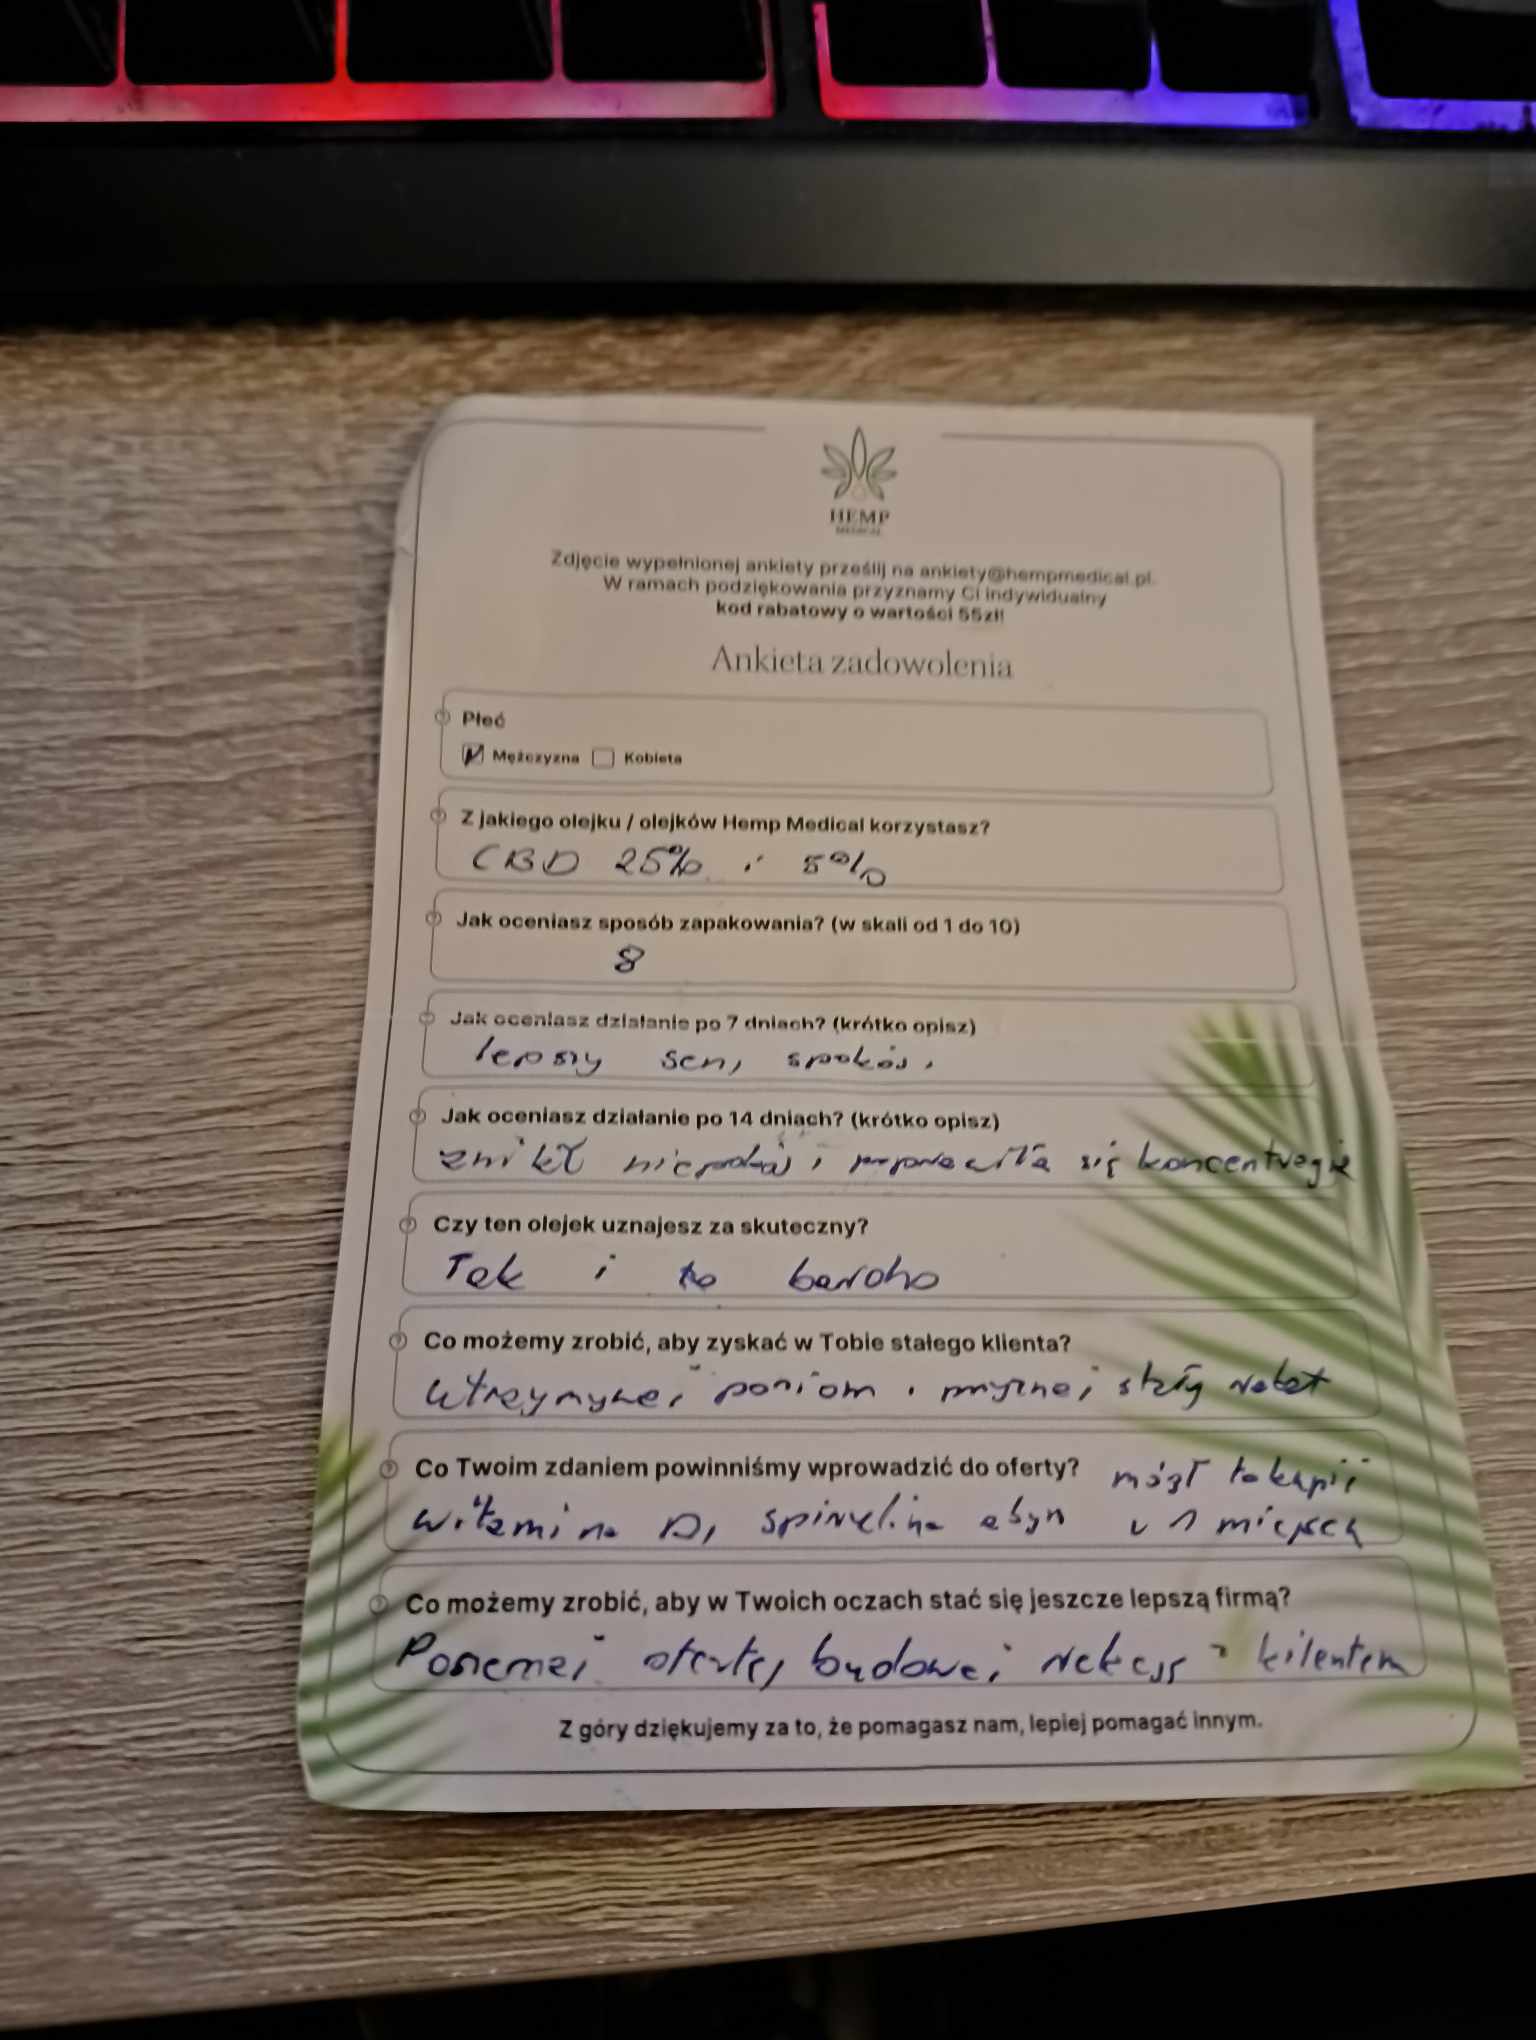 HEMP
MEDICAL
Zdjęcie wypełnionej ankiety prześlij na ankiety@hempmedical.pl.
W ramach podziękowania przyznamy Ci indywidualny
kod rabatowy o wartości 55zł!
Ankieta zadowolenia
Płeć
Mężczyzna Kobieta
Z jakiego olejku / olejków Hemp Medical korzystasz?
CBD 25% i 5%
Jak oceniasz sposób zapakowania? (w skali od 1 do 10)
8
Jak oceniasz działanie po 7 dniach? (krótko opisz)
lepszy sen, spokój.
Jak oceniasz działanie po 14 dniach? (krótko opisz)
znikł niepokój i poprawiła się koncentracja
Czy ten olejek uznajesz za skuteczny?
Tak i to bardzo
Co możemy zrobić, aby zyskać w Tobie stałego klienta?
utrzymywać poziom i przyznać stały rabat
Co Twoim zdaniem powinniśmy wprowadzić do oferty? mógł to kupić
witamina D, spirulina abym w 1 miejscu
Co możemy zrobić, aby w Twoich oczach stać się jeszcze lepszą firmą?
Poszerzać ofertę, budować relacje z kilentem
Z góry dziękujemy za to, że pomagasz nam, lepiej pomagać innym.